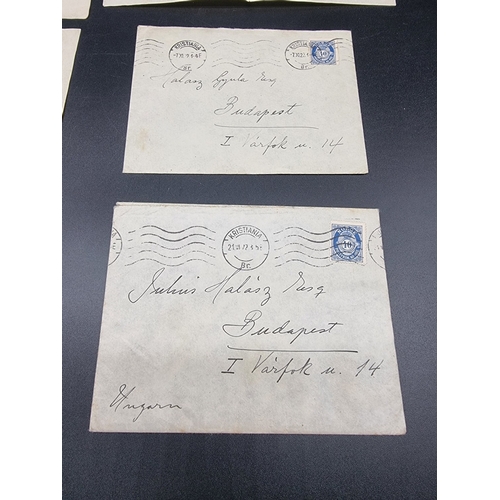 KRISTIANIA
Br.
Halász Gyula Esq
Budapest
I Várfok u. 14
KRISTIANIA
Br.
40
Julius Halász Esq
Budapest
I Várfok u. 14
Ungarn